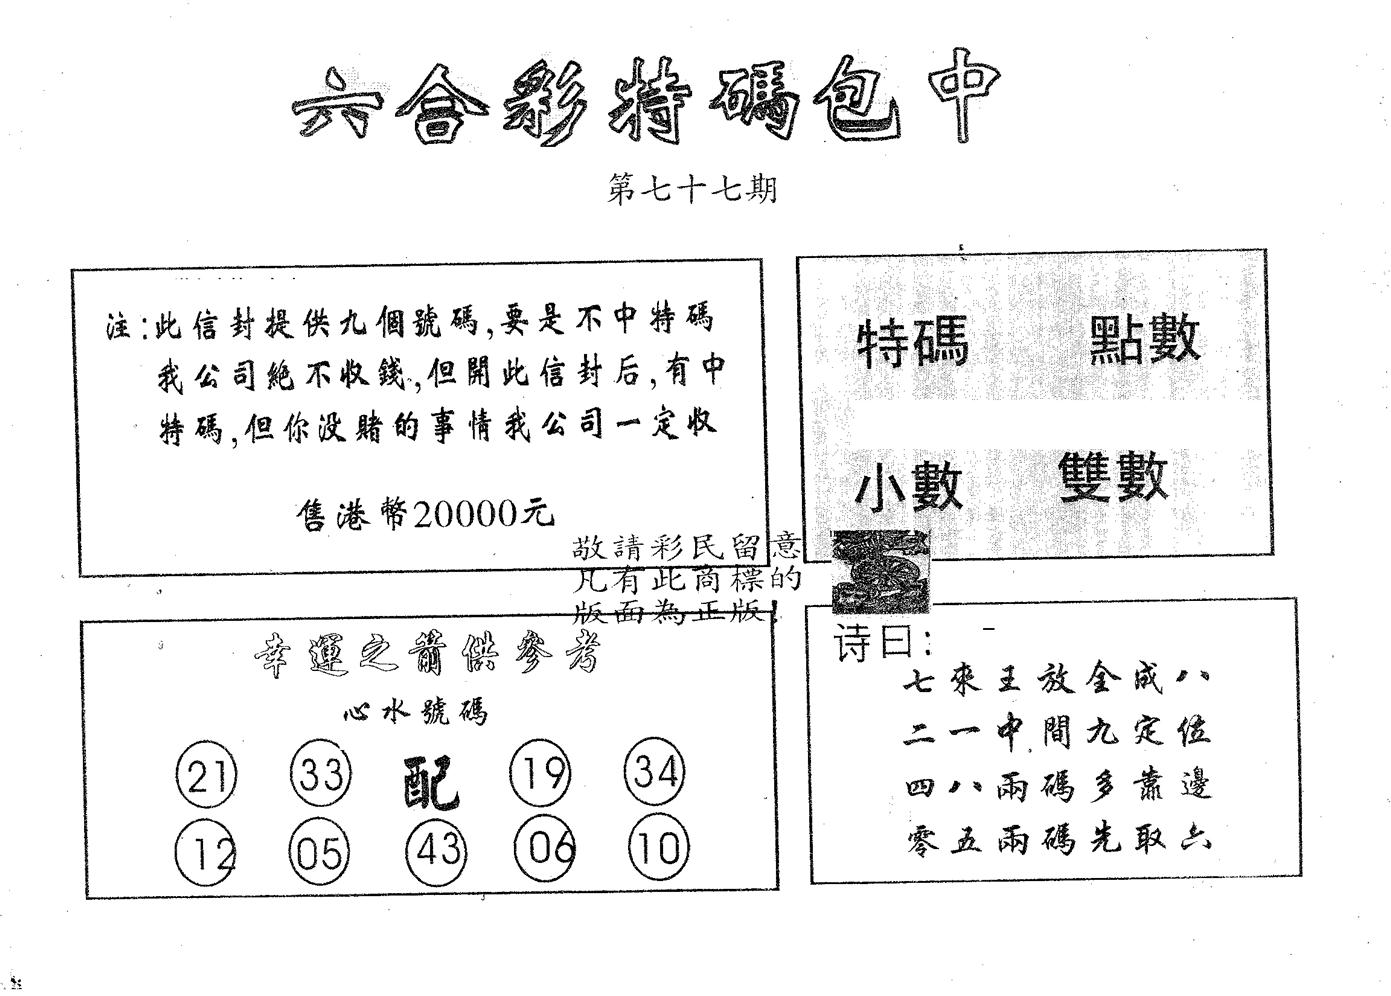 六合彩特碼包中
第七十七期
注:此信封提供九個號碼,要是不中特碼
我公司絕不收錢,但開此信封后,有中
特碼,但你没賭的事情我公司一定收
售港幣20000元
特碼 點數
小數 雙數
敬請彩民留意
凡有此商標的
版面為正版!
幸運之箭供參考
心水號碼
21 33 配 19 34
12 05 43 06 10
诗曰:
七來王放全成八
二一中間九定位
四八兩碼多靠邊
零五兩碼先取六